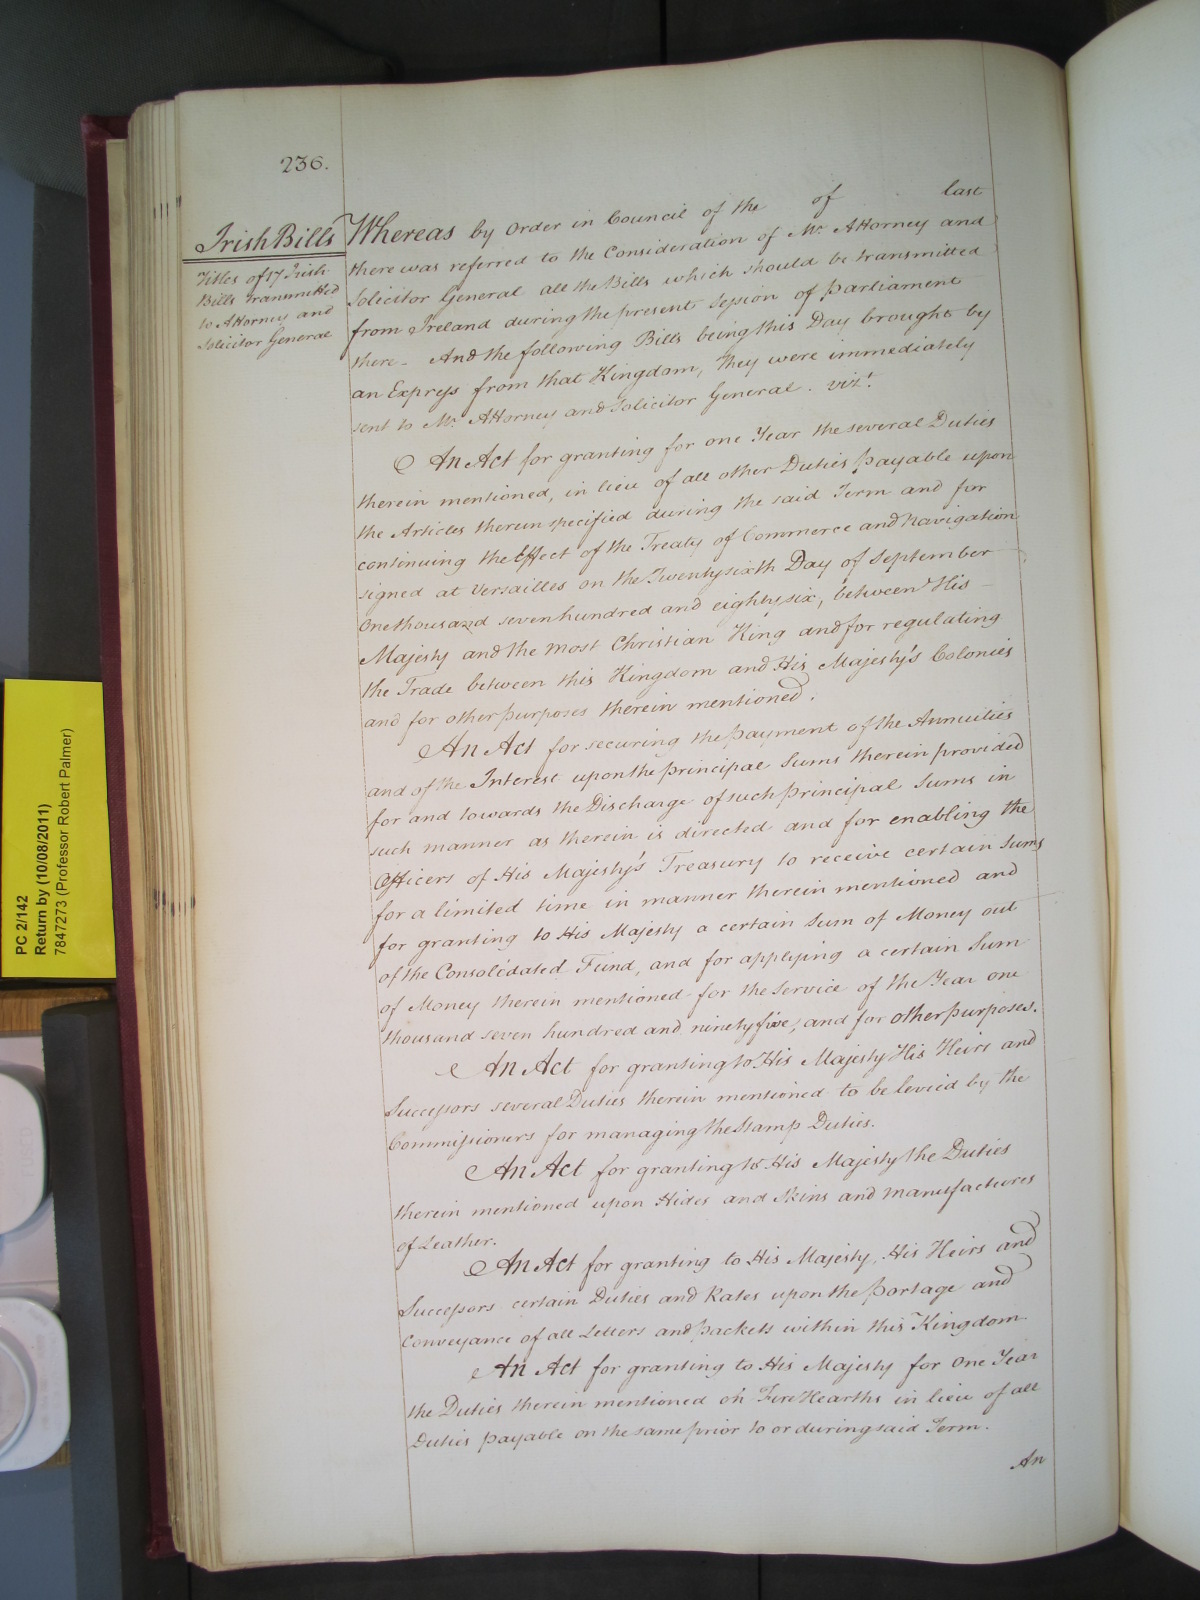 236.
Irish Bills
Titles of 17 Irish
Bills transmitted
to Attorney and
Solicitor General
Whereas by Order in Council of the of last
there was referred to the Consideration of Mr. Attorney and
Solicitor General all the Bills which should be transmitted
from Ireland during the present Session of Parliament
there - And the following Bills being this Day brought by
an Express from that Kingdom, they were immediately
sent to Mr. Attorney and Solicitor General. vizt.
An Act for granting for one Year the several Duties
therein mentioned, in lieu of all other Duties payable upon
the Articles therein specified during the said Term and for
continuing the Effect of the Treaty of Commerce and Navigation
signed at Versailles on the Twentysixth Day of September
One thousand seven hundred and eighty six, between His
Majesty and the most Christian King and for regulating
the Trade between this Kingdom and His Majesty's Colonies
and for other purposes therein mentioned.
An Act for securing the payment of the Annuities
and of the Interest upon the principal Sums therein provided
for and towards the Discharge of such principal Sums in
such manner as therein is directed and for enabling the
Officers of His Majesty's Treasury to receive certain Sums
for a limited time in manner therein mentioned and
for granting to His Majesty a certain Sum of Money out
of the Consolidated Fund, and for applying a certain Sum
of Money therein mentioned for the Service of the Year one
thousand seven hundred and ninety five, and for other purposes.
An Act for granting to His Majesty His Heirs and
Successors several Duties therein mentioned to be levied by the
Commissioners for managing the Stamp Duties.
An Act for granting to His Majesty the Duties
therein mentioned upon Hides and Skins and Manufactures
of Leather.
An Act for granting to His Majesty, His Heirs and
Successors certain Duties and Rates upon the Portage and
Conveyance of all Letters and packets within this Kingdom.
An Act for granting to His Majesty for One Year
the Duties therein mentioned on Fire Hearths in lieu of all
Duties payable on the same prior to or during said Term.
An
PC 2/142
Return by (10/08/2011)
7847273 (Professor Robert Palmer)